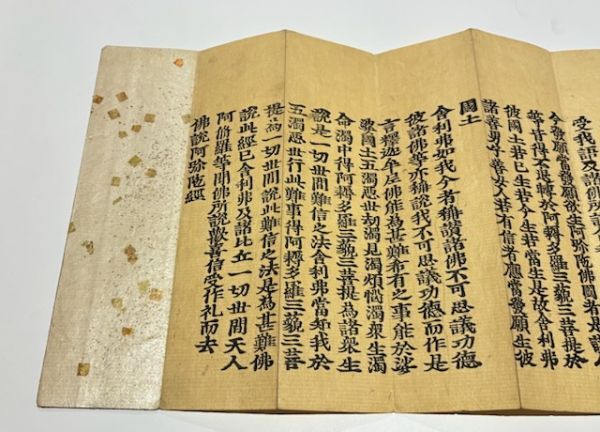 受我語及諸佛所說
今發願當發願欲生阿弥陀佛國者是諸人
等皆得不退轉於阿耨多羅三藐三菩提於
彼國土若已生若今生若當生是故舍利弗
諸善男子善女人若有信者應當發願生彼
國土
舍利弗如我今者稱讚諸佛不可思議功德
彼諸佛等亦稱說我不可思議功德而作是
言釋迦牟尼佛能為甚難希有之事能於娑
婆國土五濁惡世劫濁見濁煩惱濁衆生濁
命濁中得阿耨多羅三藐三菩提為諸衆生
說是一切世間難信之法舍利弗當知我於
五濁惡世行此難事得阿耨多羅三藐三菩
提為一切世間說此難信之法是為甚難佛
說此經已舍利弗及諸比丘一切世間天人
阿修羅等聞佛所說歡喜信受作礼而去
佛說阿弥陀經